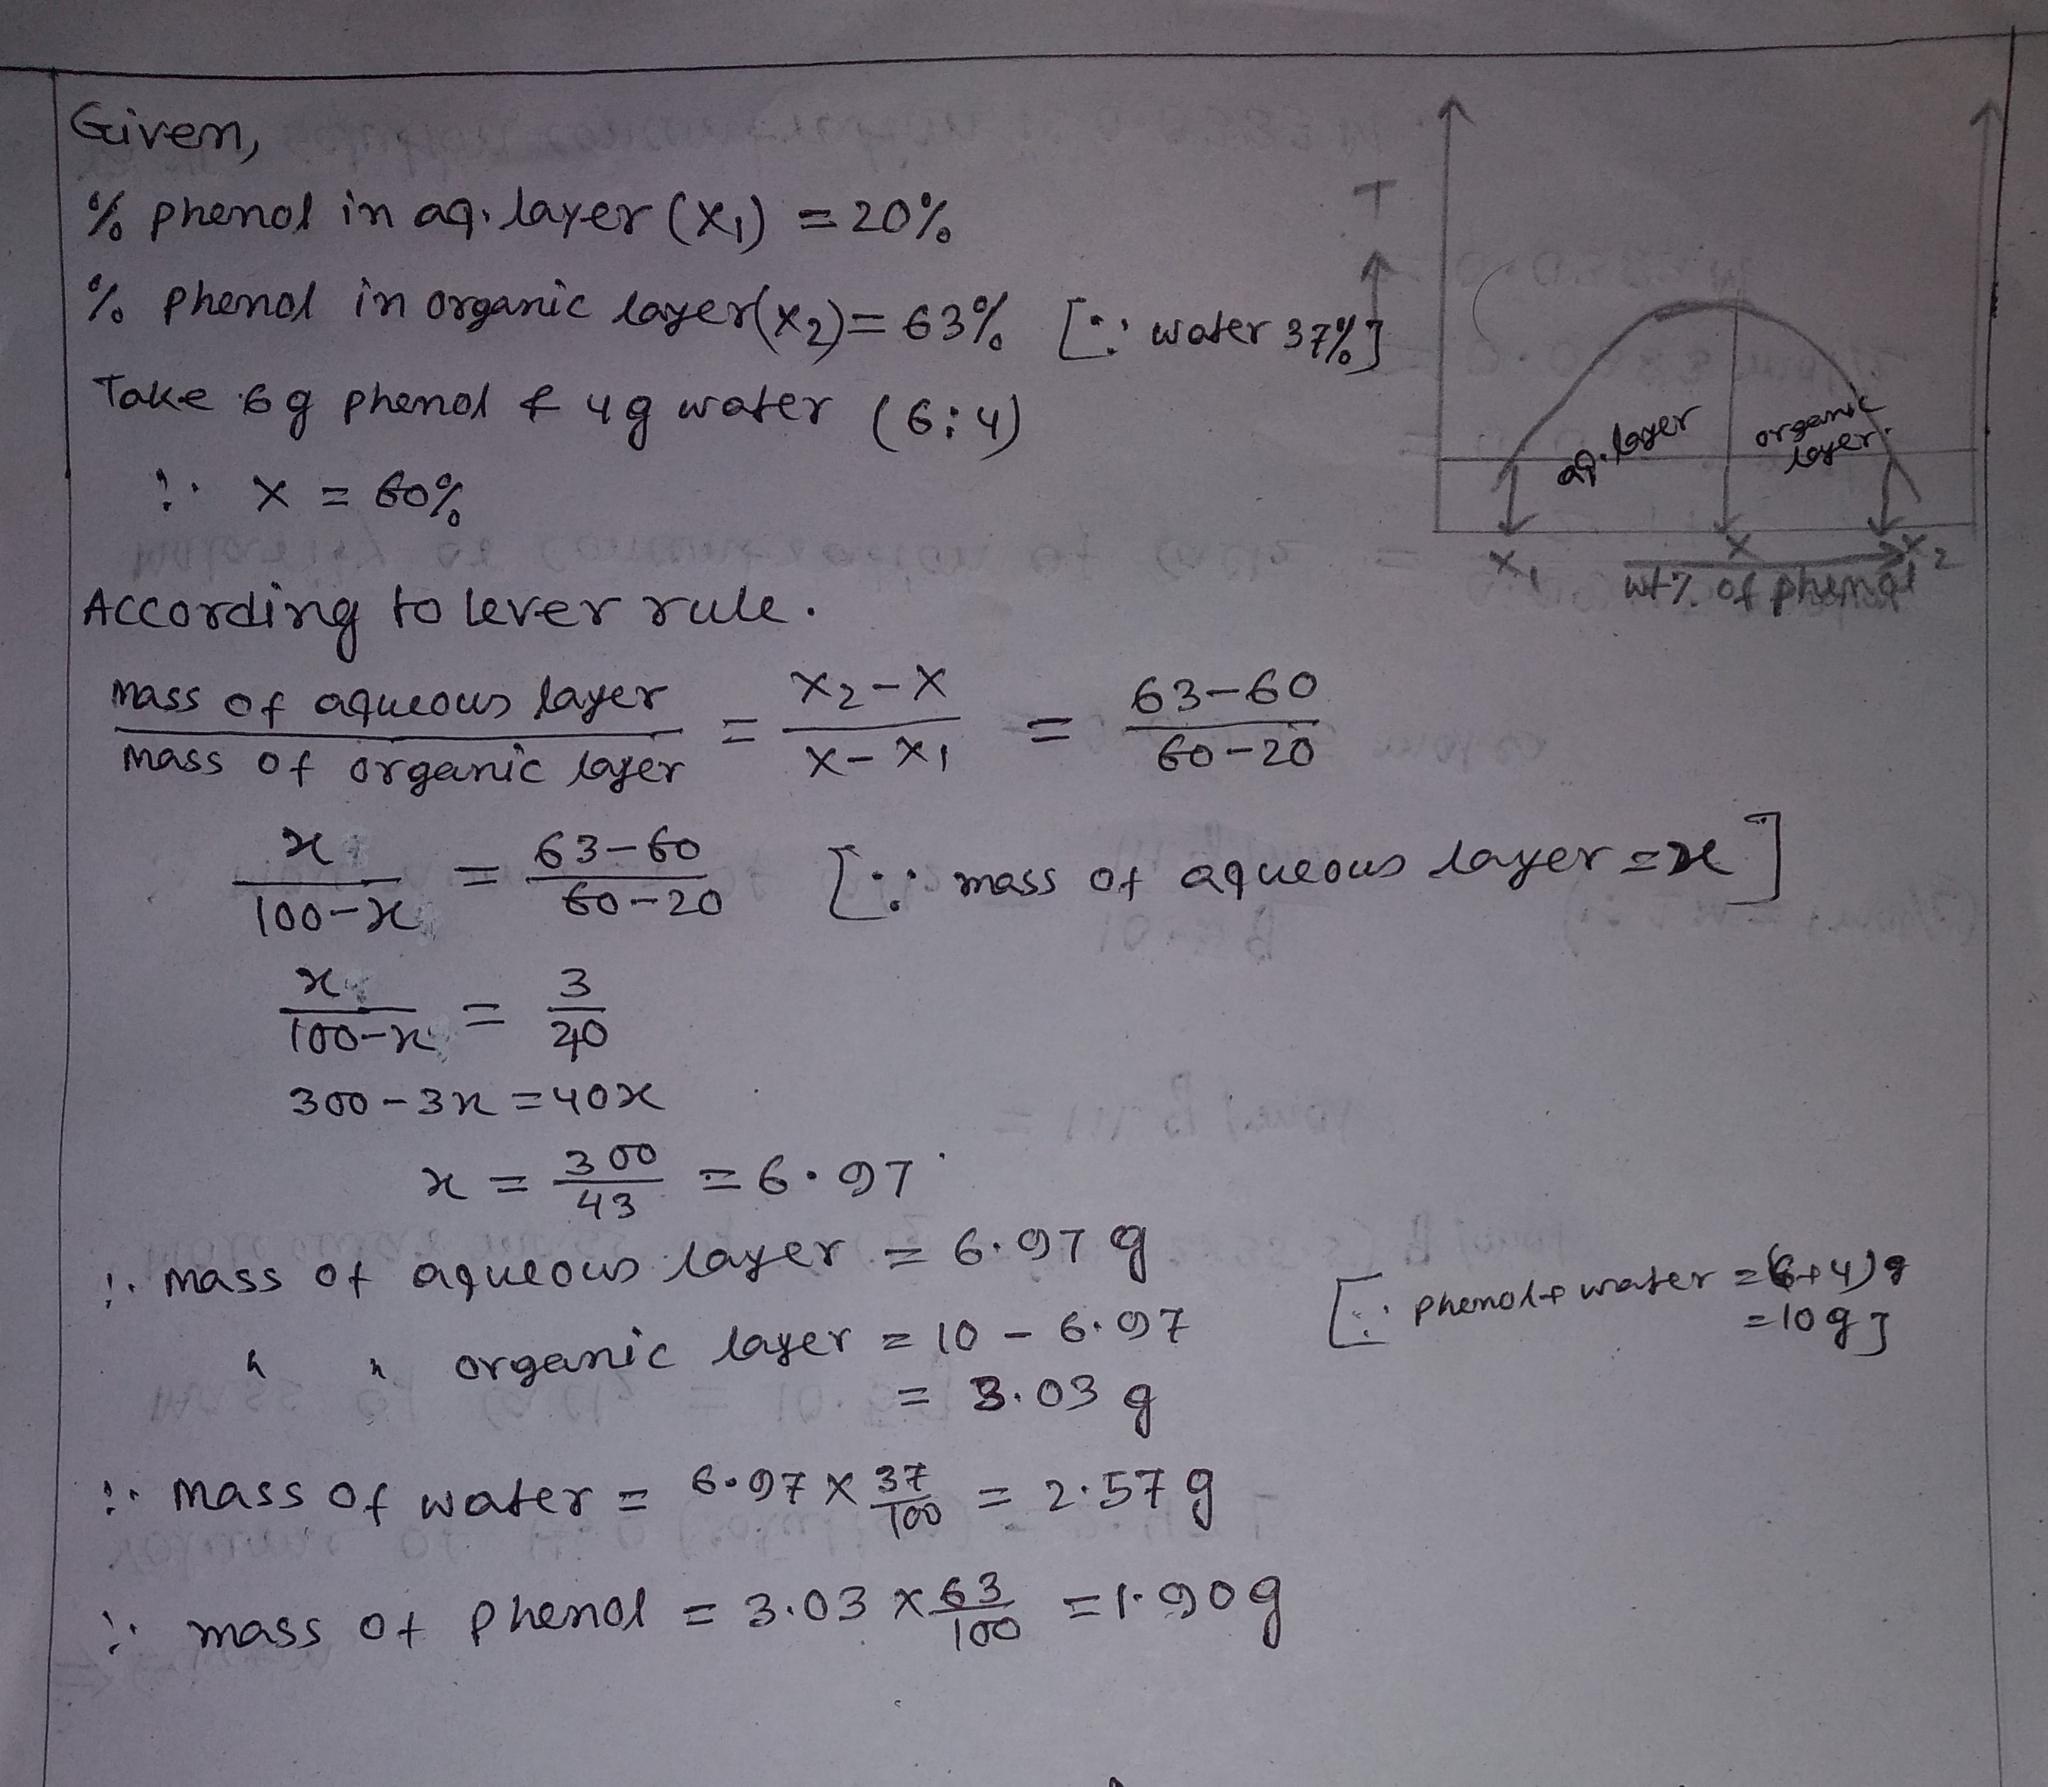 Given,
% phenol in aq. layer (X₁) = 20%
% phenol in organic layer (X₂) = 63% [∵ water 37%]
Take 6g phenol & 4g water (6:4)
∴ X = 60%
T
aq. layer
organic layer.
X₁ X X₂
wt% of phenol
According to lever rule.
mass of aqueous layer / mass of organic layer = X₂-X / X-X₁ = 63-60 / 60-20
x / 100-x = 63-60 / 60-20 [∵ mass of aqueous layer = x]
x / 100-x = 3 / 40
300-3x = 40x
x = 300 / 43 = 6.97
∴ mass of aqueous layer = 6.97 g
" " organic layer = 10 - 6.97 [∵ phenol + water = (6+4)g
= 3.03 g = 10g]
∴ mass of water = 6.97 x 37/100 = 2.57 g
∴ mass of phenol = 3.03 x 63/100 = 1.90g